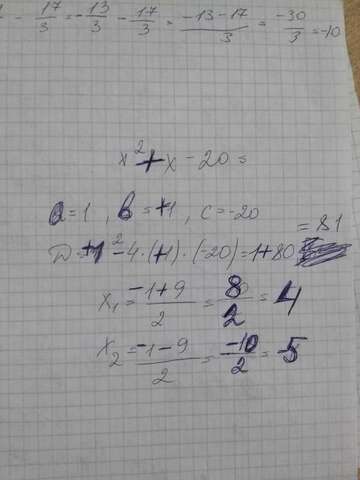 - 17/3 = -13/3 - 17/3 = -13-17/3 = -30/3 = -10
x² + x - 20 =
a = 1 , b = +1 , c = -20
D = +1² - 4 · (+1) · (-20) = 1 + 80 = 81
x₁ = -1+9/2 = 8/2 = 4
x₂ = -1-9/2 = -10/2 = -5